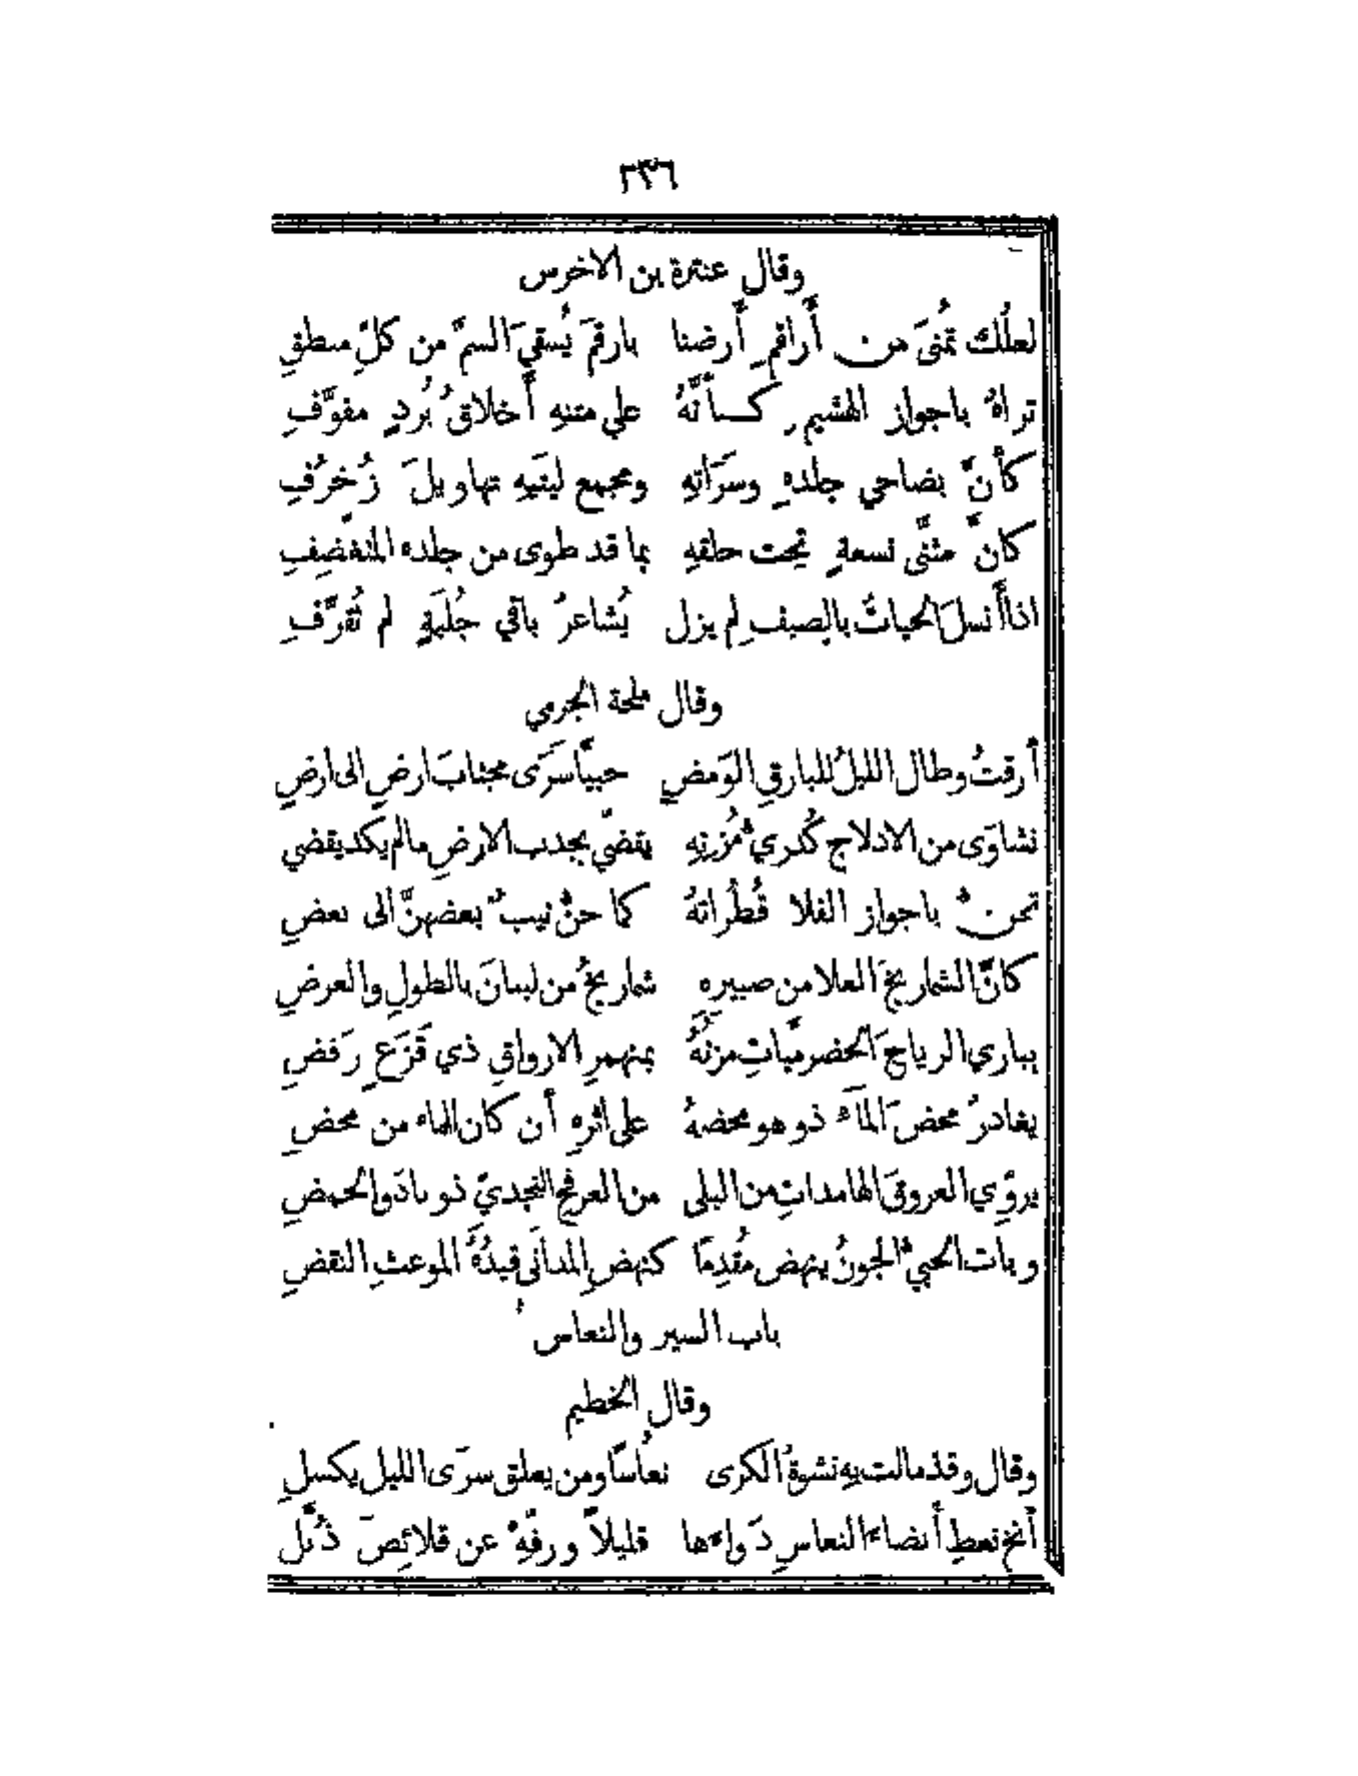 ٣٣٦
وقال عنترة بن الاخرس
لعلَّك تُمنَى من أَراقمِ أَرضنا بارقمَ يُسقي السمَّ من كلِّ منطقِ
تراهُ باجوازِ الهشيمِ كأنَّهُ على متنهِ أَخلاقُ بُردٍ مفوَّفِ
كأنَّ بضاحي جلدهِ وسَرَاتهِ ومجمع ليتَيهِ تهاويلَ زُخرُفِ
كانَّ مثنَّى نسعةٍ تحت حلقهِ بما قد طوى من جلده المتغضِّفِ
اذا أَنسلَ الحياتُ بالصيفِ لم يزل يُشاعرُ باقي جُلبَةٍ لم تُقرَّفِ
وقال ملحة الجرمي
أَرقتُ وطال الليلُ للبارقِ الوَمضِ حبيًّا سَرَى مجتابَ ارضٍ الى ارضِ
نشاوَى من الادلاج كُدريُّ مُزنهِ يقضّي بجدب الارضِ مالم يكد يقضي
تحنُّ باجوازِ الفلا قُطُراتهُ كما حنَّ نيبٌ بعضهنَّ الى بعضِ
كانَّ الشماريخَ العلا من صبيرهِ شماريخُ من لبنانَ بالطولِ والعرضِ
يباري الرياحَ الحضرميَّاتِ مزنُهُ بمنهمرِ الارواقِ ذي قَزَعٍ رَفضِ
يغادرُ محضَ المآءِ ذو هو محضهُ على اثرهِ أن كان للماء من محضِ
يروِّي العروقَ الهامداتِ من البلى من العرفجِ النجديّ ذو بادَ والحمضِ
وباتَ الحبيُّ الجونُ ينهض مُقدِمًا كنهضِ المدانَى قيدُهُ الموعثِ النقضِ
باب السير والنعاس
وقال الخطيم
وقال وقد مالت بهِ نشوةُ الكرى نعُاسًا ومن يعلق سرَى الليل يكسلِ
أَنخ نعطِ أَنضاءَ النعاسِ دَواءَها قليلاً ورفِّهْ عن قلائِصَ ذُبَّلِ